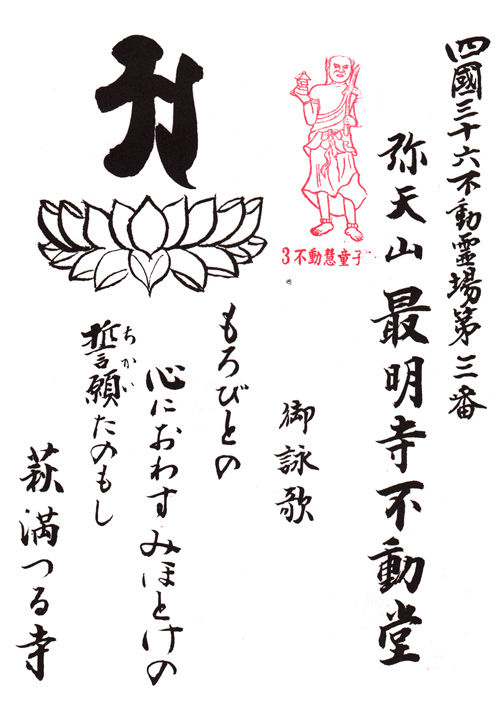 四國三十六不動霊場第三番
弥天山 最明寺不動堂
3不動慧童子
御詠歌
もろびとの
心におわす みほとけの
誓願たのもし
ちかい
萩満つる寺